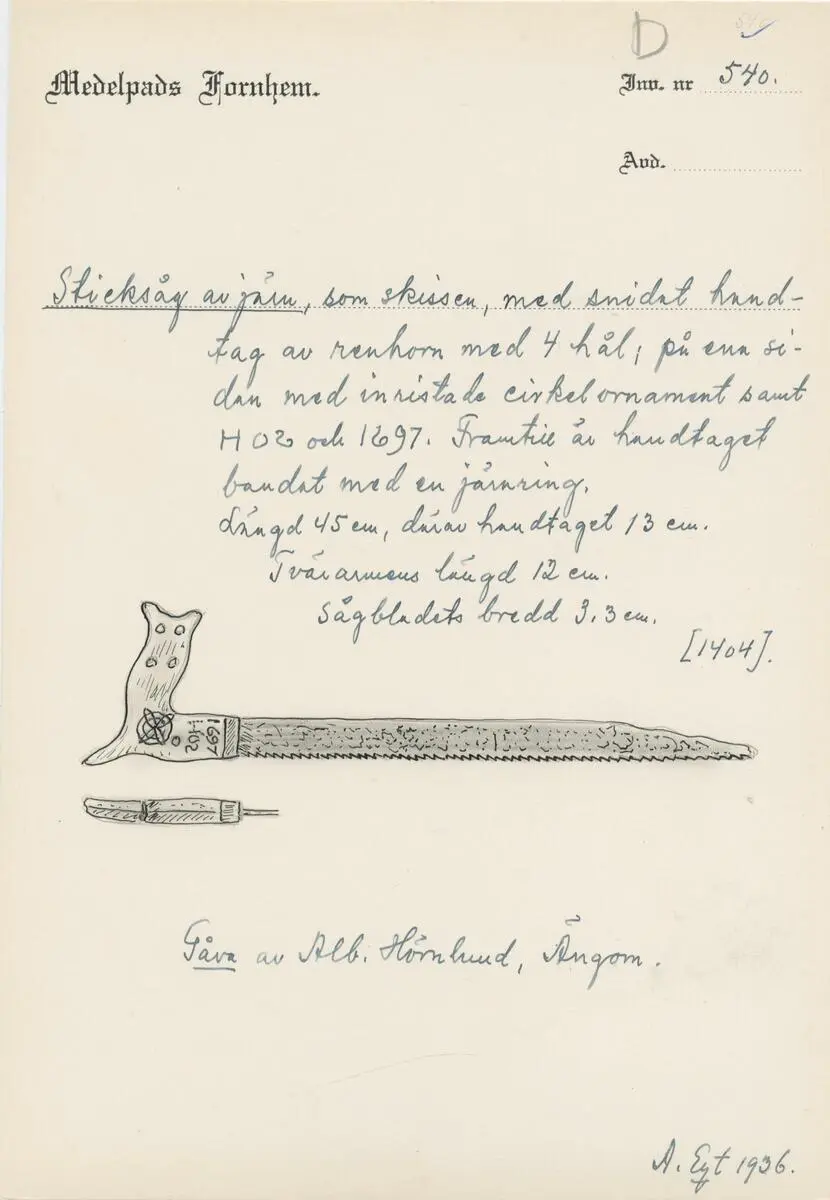 D
540
Medelpads Fornhem.
Inv. nr 540.
Avd.
Sticksåg av järn, som skissen, med snidat hand-
tag av renhorn med 4 hål; på ena si-
dan med inristade cirkelornament samt
HO2 och 1697. Framtill är handtaget
bandat med en järnring.
Längd 45 cm, därav handtaget 13 cm.
Tvärarmens längd 12 cm.
Sågbladets bredd 3.3 cm.
[1404].
1697
HO2
Gåva av Alb. Hörnlund, Ängom.
A. Eqt 1936.